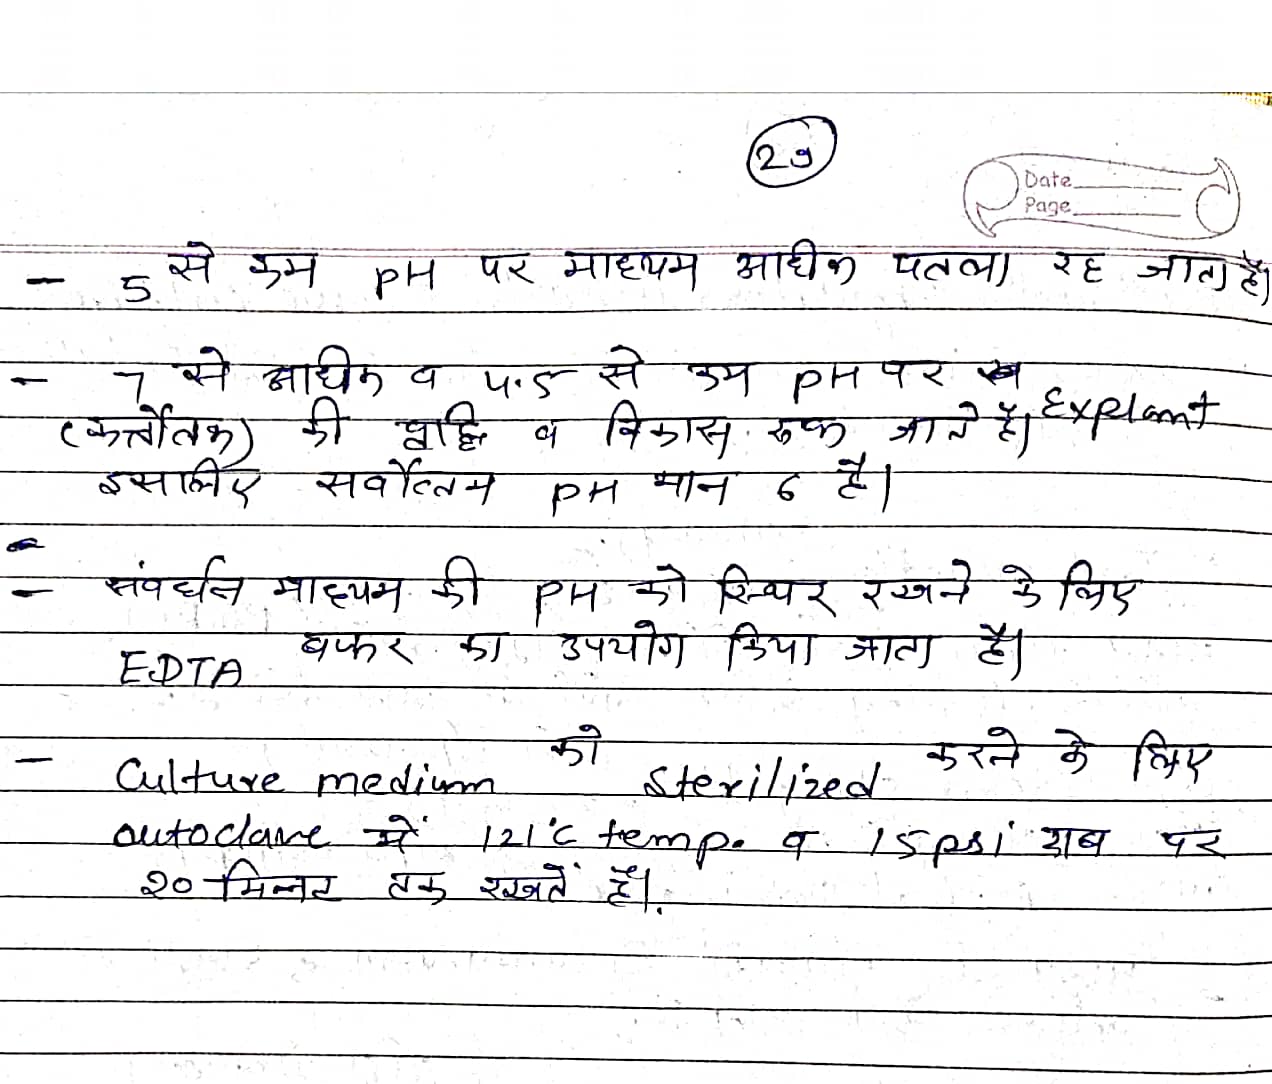 29
Date
Page
- 5 से कम pH पर माध्यम अधिक पतला रह जाता है।
- 7 से अधिक व 4.5 से कम pH पर Explant
(कर्त्तोतक) की वृद्धि व विकास रुक जाते हैं।
इसलिए सर्वोत्तम pH मान 6 है।
- संवर्धन माध्यम की PH को स्थिर रखने के लिए
EDTA बफर का उपयोग किया जाता है।
- Culture medium को sterilized करने के लिए
autoclave में 121°C temp. व 15psi दाब पर
20 मिनट तक रखतें हैं।.